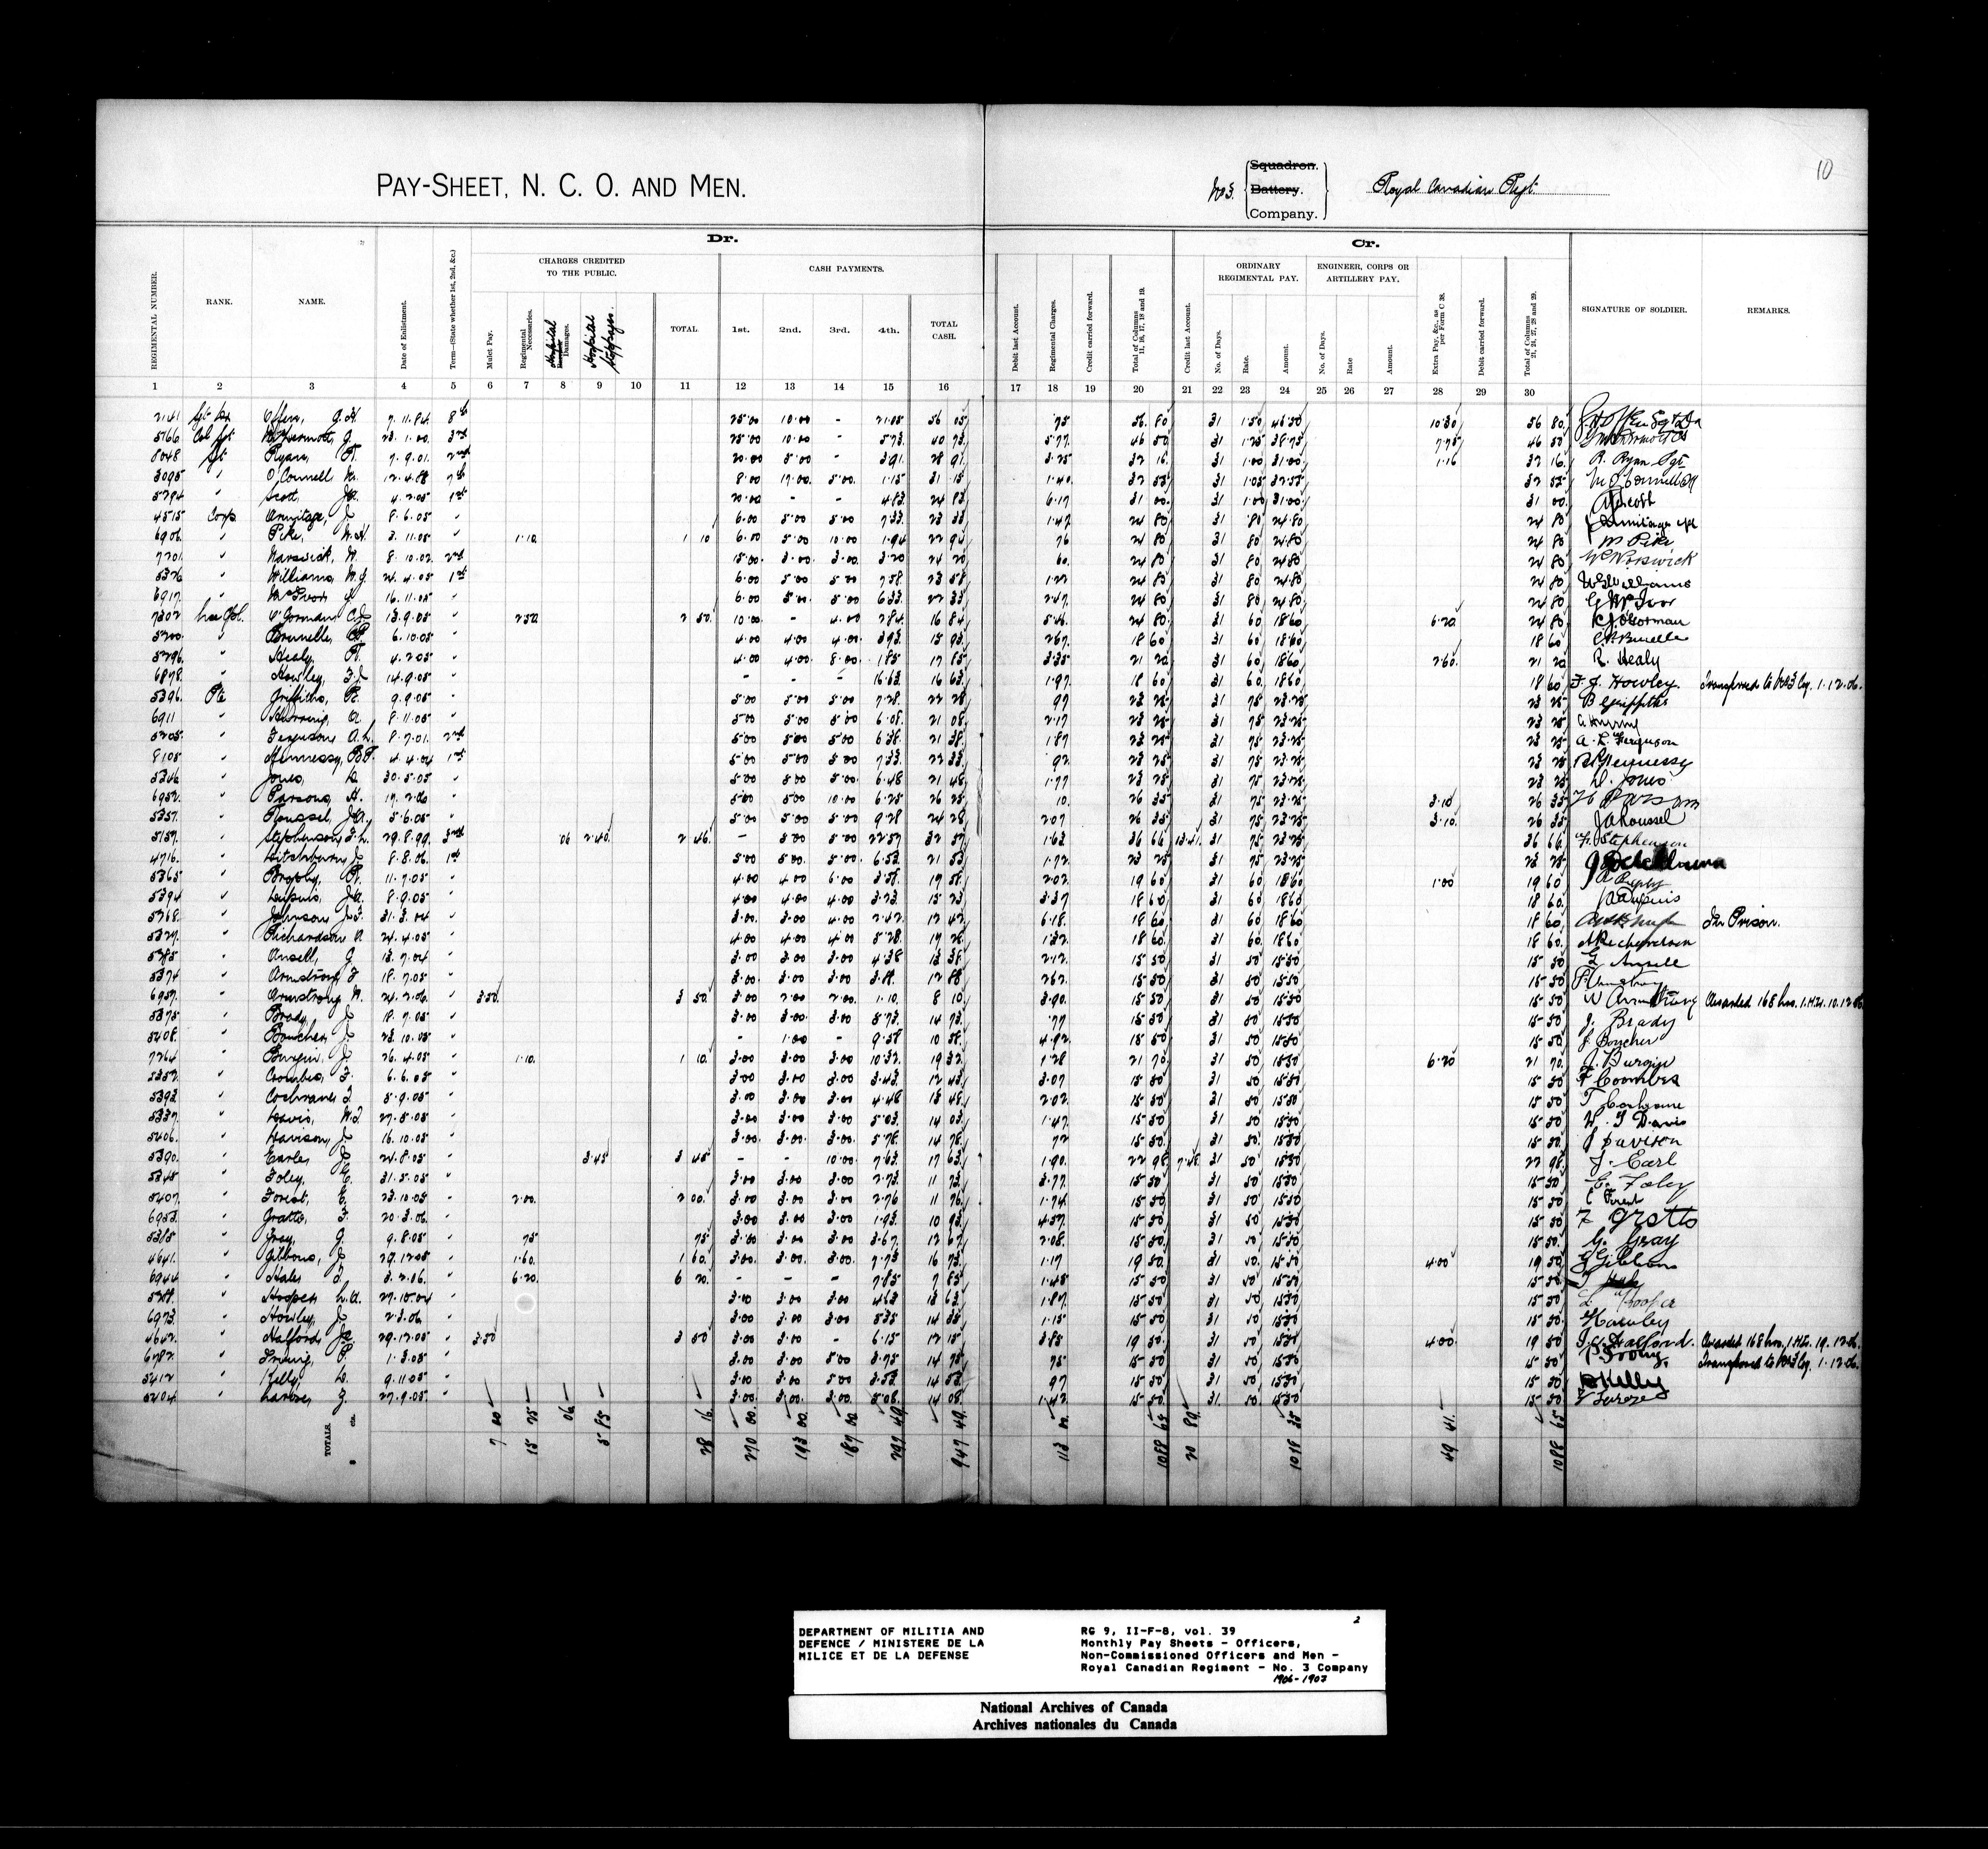 10
PAY-SHEET, N. C. O. AND MEN.
No 3. Squadron. Battery. Company. Royal Canadian Regt
Dr. Cr.
CHARGES CREDITED TO THE PUBLIC. CASH PAYMENTS. ORDINARY REGIMENTAL PAY. ENGINEER, CORPS OR ARTILLERY PAY.
REGIMENTAL NUMBER. RANK. NAME. Date of Enlistment. Term—(State whether 1st, 2nd, &c.) Mulct Pay. Regimental Necessaries. Hospital Damages. Hospital Stoppages. TOTAL 1st. 2nd. 3rd. 4th. TOTAL CASH. Debit last Account. Regimental Charges. Credit carried forward. Total of Columns 11, 16, 17, 18 and 19. Credit last Account. No. of Days. Rate. Amount. No. of Days. Rate Amount. Extra Pay, &c., as per Form C 38. Debit carried forward. Total of Columns 21, 24, 27, 28 and 29. SIGNATURE OF SOLDIER. REMARKS.
1 2 3 4 5 6 7 8 9 10 11 12 13 14 15 16 17 18 19 20 21 22 23 24 25 26 27 28 29 30
2141 Offen, G.H. 7.11.84. 8th 25.00 10.00 - 21.05 56 05 .75 56. 80 31 1.50 46.50 10.30 56 80
5166 Col Sgt McDermott, G 23.1.00. 3rd 25.00 10.00 - 5.73. 40 73 5.77. 46 50 31 1.25 38.75 7.75 46 50
8048 Sgt Ryan, R. 7.9.01. 2nd 20.00 5.00 - 3.91. 28 91 3.25 32 16. 31 1.00 31.00 1.16 32 16. R. Ryan Sgt
3095 " O'Connell M. 12.4.88 7th 8.00 17.00. 5.00. 1.15 31 15 1.40. 32 55 31 1.05 32.55 32 55
5294 " Scott, 4.2.05 1st 20.00 - - 4.83. 24 83 6.17 31 00. 31 1.00 31.00 31 00.
4515 Corp Armitage, J 8.6.05 " 6.00 5.00 5.00 7.33. 23 33 1.47 24 80 31 .80 24.80 24 80
6906 " Pike, W.H. 3.11.05 " 1.10. 1 10 6.00 5.00 10.00 1.94 22 94 .76 24 80 31 80 24.80 24 80 W Pike
7201 " Warswick, W. 8.10.02. 2nd 15.00. 3.00. 3.00. 3.20 24 20 60. 24 80 31 80 24 80 24 80
5326 " Williams, W.G. 24.4.05 1st 6.00 5.00 5.00 7.58 23 58 1.22 24 80 31 80 24 80 24 80 W.G. Williams
6917 " McIvor G 16.11.05 " 6.00 5.00. 5.00 6.33 22 33 2.47. 24 80 31 80 24 80 24 80 G McIvor
7302 Lce Cpl. O'Gorman, C.J 13.9.05 " 2.50. 2 50. 10.00 - 4.00 2.84. 16 84 5.46. 24 80. 31 60 18.60 6.20 24 80 C.J. O'Gorman
5200. " Brunelle, 6.10.05 " 4.00 4.00 4.00. 3.93. 15 93 2.67. 18 60 31 60 18.60 18 60
5296. " Healy, R. 4.2.05 " 4.00 4.00. 8.00. 1.85 17 85 3.35 21 20 31 60 18.60 2.60. 21 20 R. Healy
6878. " Howley, F.J 14.9.05 " - - - 16.63. 16 63 1.97 18 60 31 60. 18.60 18 60 F.J. Howley. Transferred to No 3 Coy. 1.12.06.
5396. Pte Griffiths, R. 9.9.05 " 5.00 5.00 5.00 7.28 22 28 97 23 25 31 75 23.25 23 25
6911 " 8.11.05 " 5.00 5.00 5.00 6.08. 21 08 2.17 23 25 31 75 23.25 23 25
5205. " Ferguson, A.L. 8.7.01. 2nd 5.00 5.00 5.00 6.38. 21 38 1.87 23 25 31 75 23.25 23 25 A. L. Ferguson
8105 " Hennessy, 4.4.04 1st 5.00 5.00 5.00 7.33. 22 33. 92 23 25 31 75 23.25 23 25
5346 " Jones, D. 30.5.05 " 5.00 5.00 5.00 6.48 21 48 1.77 23 25 31 75 23.25 23 25 D. Jones
6952. " Parsons, H. 17.2.06 " 5.00 5.00 10.00 6.25 26 25 10. 26 35 31 75 23.25 3.10 26 35 H Parsons
5351. " Roussel, J.A. 5.6.05 " 5.00 5.00 5.00 9.28 24 28 2.07 26 35 31 75 23.25 3.10. 26 35 J A Roussel
5159. " Stephenson, F.L. 29.8.99. 3rd 06 2.40. 2 46. - 5.00 5.00 22.57 32 57 1.63 36 66 13.41 31 75 23.25 36 66 F. Stephenson
4716. " Ditchburn, J 8.8.06. 1st 5.00 5.00. 5.00. 6.53. 21 53 1.72. 23 25 31 75 23.25 23 25
5365 " Brophy, R. 11.7.05 " 4.00 4.00 6.00 3.58. 17 58. 2.02. 19 60 31 60 18.60 1.00 19 60
5394 " Dupuis, J.A. 8.9.05 " 4.00 4.00 4.00 3.23. 15 23 3.37 18 60 31 60 18.60 18 60
5268. " Johnson, J.F. 31.3.04 " 3.00. 3.00 4.00 2.42. 12 42 6.18. 18 60 31 60 18.60 18 60 In Prison.
5327. " Richardson A 24.4.05 " 4.00 4.00 4.00 5.28. 17 28. 1.32. 18 60. 31 60. 18.60 18 60.
5385 " Ansell, G 13.7.04 " 3.00 3.00 3.00 4.38 13 38. 2.12. 15 50 31 50 15.50 15 50 G Ansell
5374 " Armstrong, F 18.7.05 " 3.00. 3.00 3.00 3.88. 12 88 2.62. 15 50 31 50 15.50 15 50
6959. " Armstrong W. 24.2.06. " 3.50. 3 50. 3.00 2.00 2.00. 1.10. 8 10. 3.90. 15 50. 31 50 15.50 15 50 W Armstrong Awarded 168 hrs. I.H.L. 10.12.06.
5375 " Brady, J 18.7.05 " 3.00 3.00. 3.00 5.73. 14 73. 77 15 50 31 50 15.50 15 50 J. Brady
5408. " Boucher, J. 23.10.05 " - 1.00 - 9.58 10 58. 4.92 15 50 31 50 15.50 15 50 J Boucher
7264 " Burgin, J 26.4.05 " 1.10. 1 10. 3.00 3.00 3.00 10.32. 19 32 1.28 21 70. 31 50 15.50 6.20 21 70. J. Burgin
5352. " Coombes, F. 6.6.05 " 3.00 3.00 3.00 3.43. 12 43. 3.07 15 50 31 50 15.50 15 50 F Coombes
5393 " Cochrane, T 5.9.05 " 3.00 3.00 3.00 4.48 13 48. 2.02 15 50 31 50 15.50 15 50 T Cochrane
5337. " Davis, W.T. 27.5.05 " 3.00. 3.00. 3.00 5.03. 14 03. 1.47. 15 50. 31 50. 15.50 15 50 W. T Davis
5406. " Davison, J 16.10.05 " 3.00. 3.00. 3.00. 5.78. 14 78. 72 15 50. 31 50' 15.50 15 50. J Davison
5390. " Earle, J. 24.8.05 " 3.45 3 45. - - 10.00 7.63. 17 63 1.90. 22 98 7.48 31 50' 15.50 22 98. J. Earl
5345 " Foley, C. 31.5.05 " 3.00. 3.00 3.00 2.73. 11 73 3.77. 15 50 31 50 15.50 15 50 C. Foley
5407. " Forest, E. 23.10.05 " 2.00. 2 00. 3.00 3.00 3.00 2.76 11 76 1.74. 15 50 31 50 15.50 15 50 E Forest
6953. " Gratto, F. 20.3.06. " 3.00 3.00 3.00 1.93. 10 93. 4.57. 15 50 31 50 15.50 15 50 F Gratto
5385 " Gray, G 9.8.05 " 75 75 3.00 3.00 3.00 3.67 12 67. 2.08. 15 50 31 50 15.50 15 50. G. Gray
4641. " Gibbons, J 29.12.05 " 1.60. 1 60. 3.00. 3.00. 3.00. 7.73 16 73 1.17 19 50. 31 50. 15.50 4.00 19 50 J Gibbons
6944 " Hales T. 3.2.06. " 6.20. 6 20. - - - 7.85 7 85 1.45 15 50 31 50' 15.50 15 50.
5258. " Hooper, L.A. 27.10.04 " 3.00 3.00 3.00 4.63 13 63 1.87. 15 50 31 50 15.50 15 50 L. Hooper
6973. " Howley, J 2.3.06 " 3.00 3.00 3.00 5.35 14 35 1.15 15 50 31 50 15.50 15 50
4642. " Halford, 29.12.05 " 3.50 3 50 3.00 3.00 - 6.15 12 15 3.85 19 50. 31 50' 15.50 4.00. 19 50 Halford. Awarded 168 hrs, I.H.L. 19.12.06.
6782. " Irving, P. 1.3.05 " 3.00. 3.00 5.00 3.75 14 75 75 15 50 31 50 15.50 15 50 P Irving. Transferred to No 3 Coy. 1.12.06.
5412 " Kelly, D. 9.11.05 " 3.00 3.00 5.00 3.53 14 53. 97 15 50 31 50 15.50 15 50 D Kelly
5404. " Larose, J. 27.9.05 " 3.00. 3.00. 3.00. 5.08. 14 08. 1.42 15 50 31. 50. 15.50 15 50 J Larose
TOTALS. 7 00 15 25 06 5 85 28 16. 270 00. 193 00. 187 00 297 49. 947 49. 113 00. 1088 65 20 89. 1018 35 49 41. 1088 65
DEPARTMENT OF MILITIA AND
DEFENCE / MINISTERE DE LA
MILICE ET DE LA DEFENSE
2
RG 9, II-F-8, vol. 39
Monthly Pay Sheets - Officers,
Non-Commissioned Officers and Men -
Royal Canadian Regiment - No. 3 Company
1906-1907
National Archives of Canada
Archives nationales du Canada